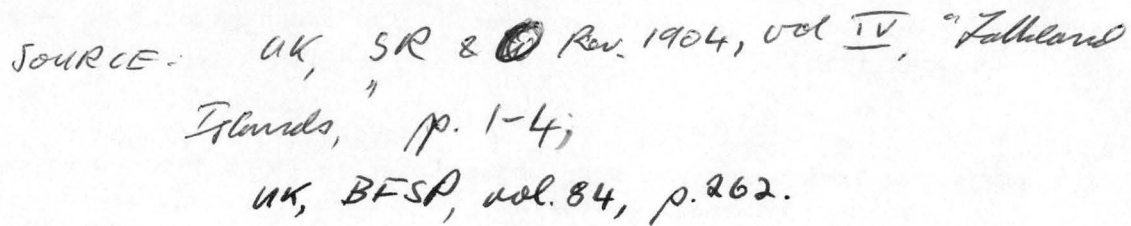 SOURCE: UK, SR & O Rev. 1904, vol IV, "Falkland
Islands," p. 1-4;
UK, BFSP, vol. 84, p. 262.